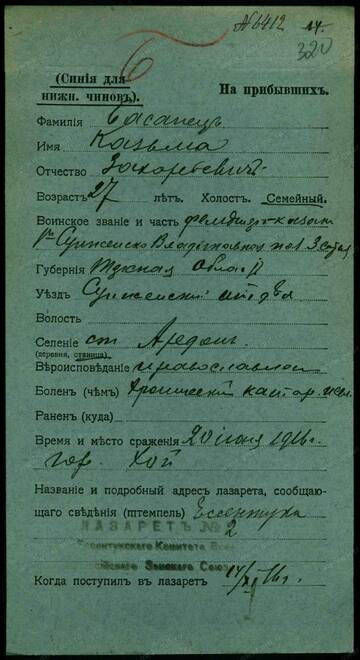 № 6412 14.
320
6
(Синія для нижн. чиновъ).
На прибывшихъ.
Фамилія
Имя Казьма
Отчество Захарьевичъ
Возрастъ 27 лѣтъ. Холост. Семейный.
Воинское званіе и часть
Сунженско Владикавказ 3 сотня
Губернія Терская обл.
Уѣздъ Сунженскій отдѣл
Волость
Селеніе ст. Ардонъ.
(деревня, станица)
Вѣроисповѣданіе православной
Боленъ (чѣмъ) Хроническій катар.
Раненъ (куда)
Время и мѣсто сраженія 20 іюня 1916 г.
гор. Хой
Названіе и подробный адресъ лазарета, сообщаю-
щаго свѣдѣнія (штемпель) Ессентуки
ЛАЗАРЕТЪ № 2
Ессентукскаго Комитета
Земскаго Союза
Когда поступилъ въ лазаретъ 16 г.